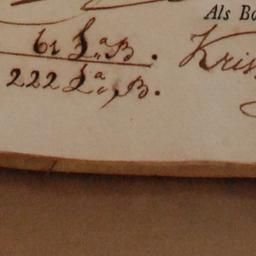 Als Bo
61 L.a B.
Kris
222 L.a B.